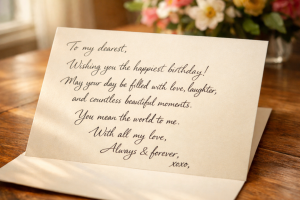 To my dearest,
Wishing you the happiest birthday!
May your day be filled with love, laughter,
and countless beautiful moments.
You mean the world to me.
With all my love,
Always & forever,
xoxo,